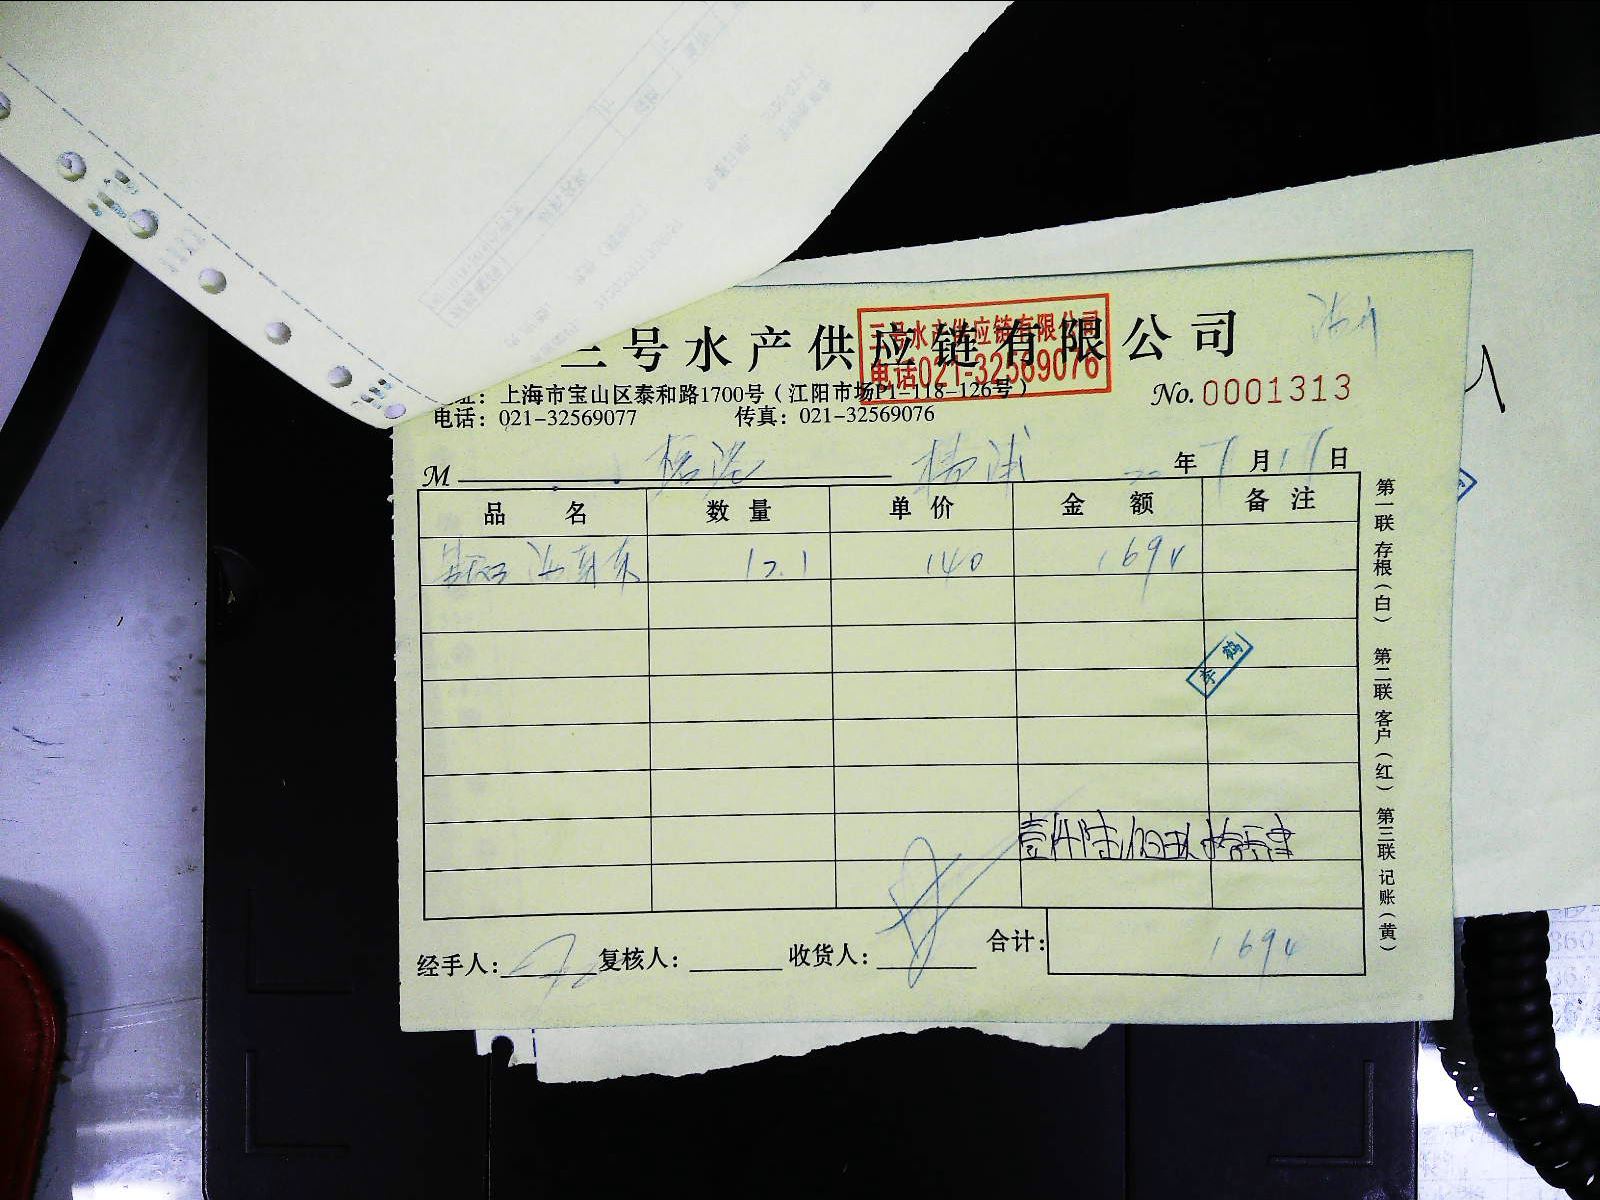 三号水产供应链有限公司
三号水产供应链有限公司
电话021-32569076
址：上海市宝山区泰和路1700号（江阳市场P1-118-126号）
No.0001313
电话：021-32569077 传真：021-32569076
M 杨浦 年 月 日
品名 数量 单价 金额 备注
12.1 140 1694
李鹤
壹仟陆佰玖拾肆
合计： 1694
经手人： 复核人： 收货人：
第一联 存根（白） 第二联 客户（红） 第三联 记账（黄）